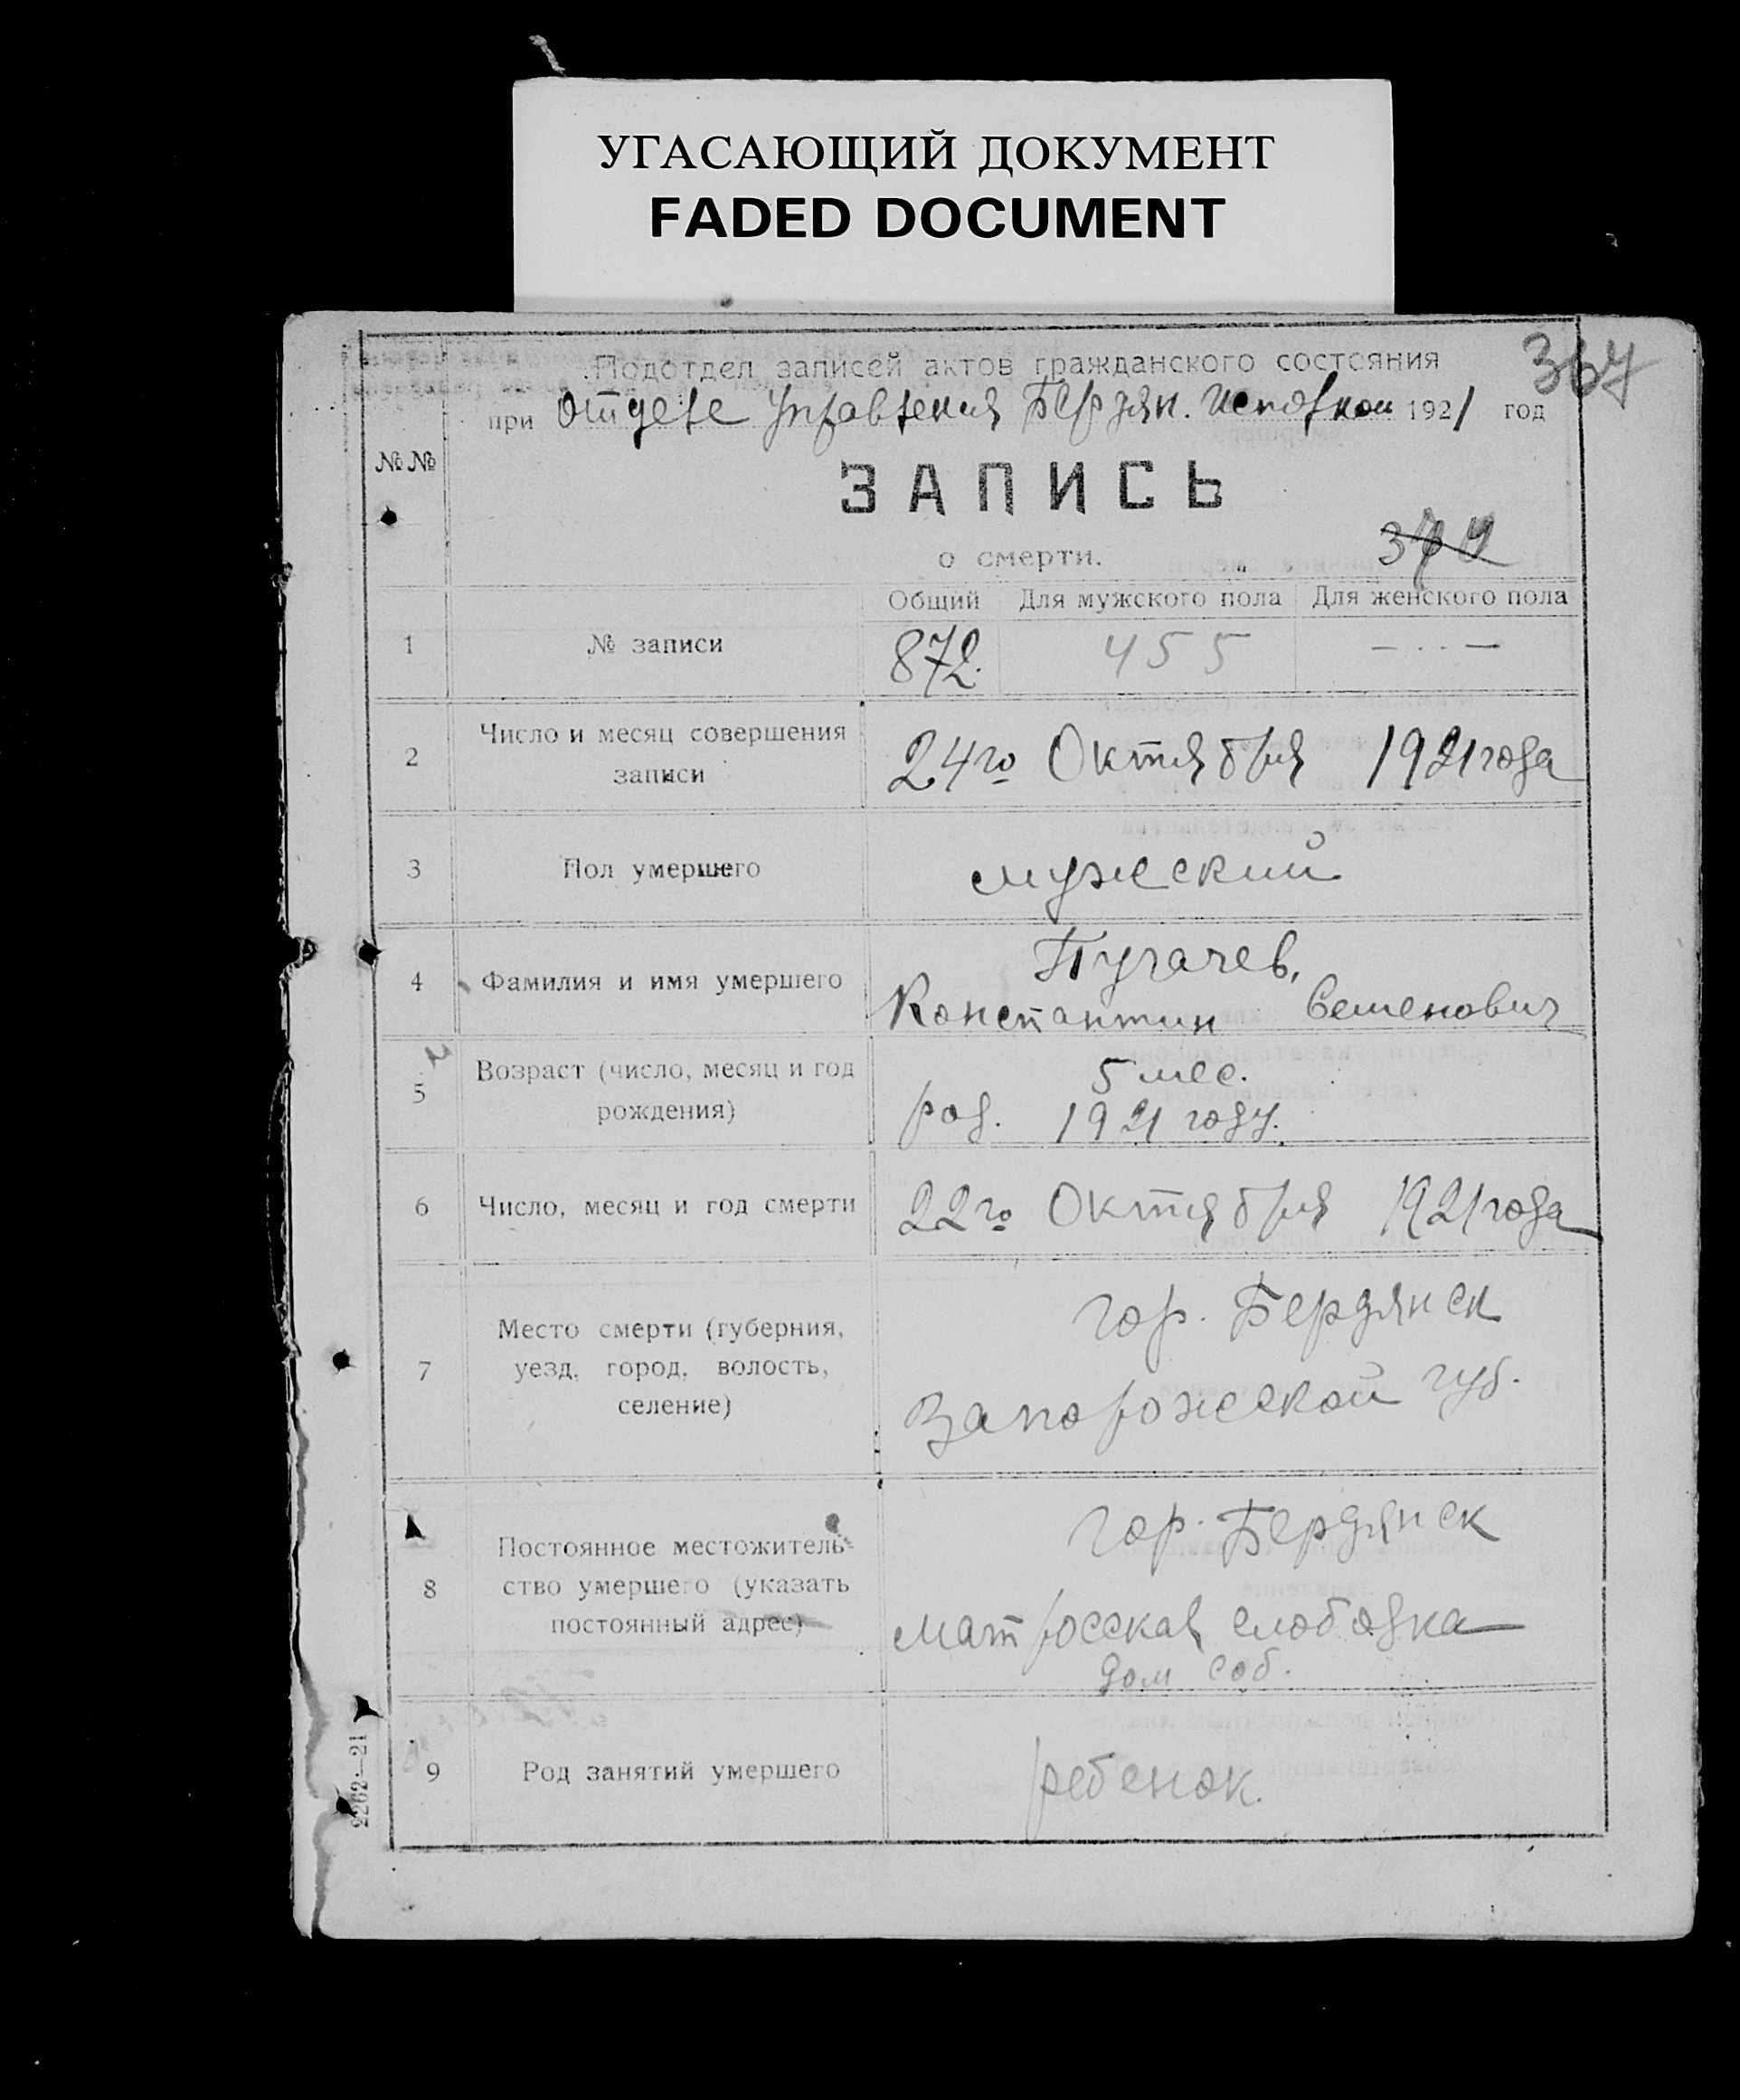 УГАСАЮЩИЙ ДОКУМЕНТ
FADED DOCUMENT
367
Подотдел записей актов гражданского состояния
при отделе Управления Бердян. Исполком 1921 год
№№
ЗАПИСЬ
о смерти.
372
Общий Для мужского пола Для женского пола
1 № записи 872. 455 — ·· —
2 Число и месяц совершения
записи
24го Октября 1921 года
3 Пол умершего мужеский
4 Фамилия и имя умершего
Пугачев,
Константин Семенович
5 Возраст (число, месяц и год
рождения)
5 мес.
род. 1921 году.
6 Число, месяц и год смерти 22го Октября 1921 года
7 Место смерти (губерния,
уезд, город, волость,
селение)
гор. Бердянск
Запорожской губ.
8 Постоянное местожитель-
ство умершего (указать
постоянный адрес)
гор. Бердянск
матросская слободка
дом соб.
9 Род занятий умершего ребенок.
2262—21